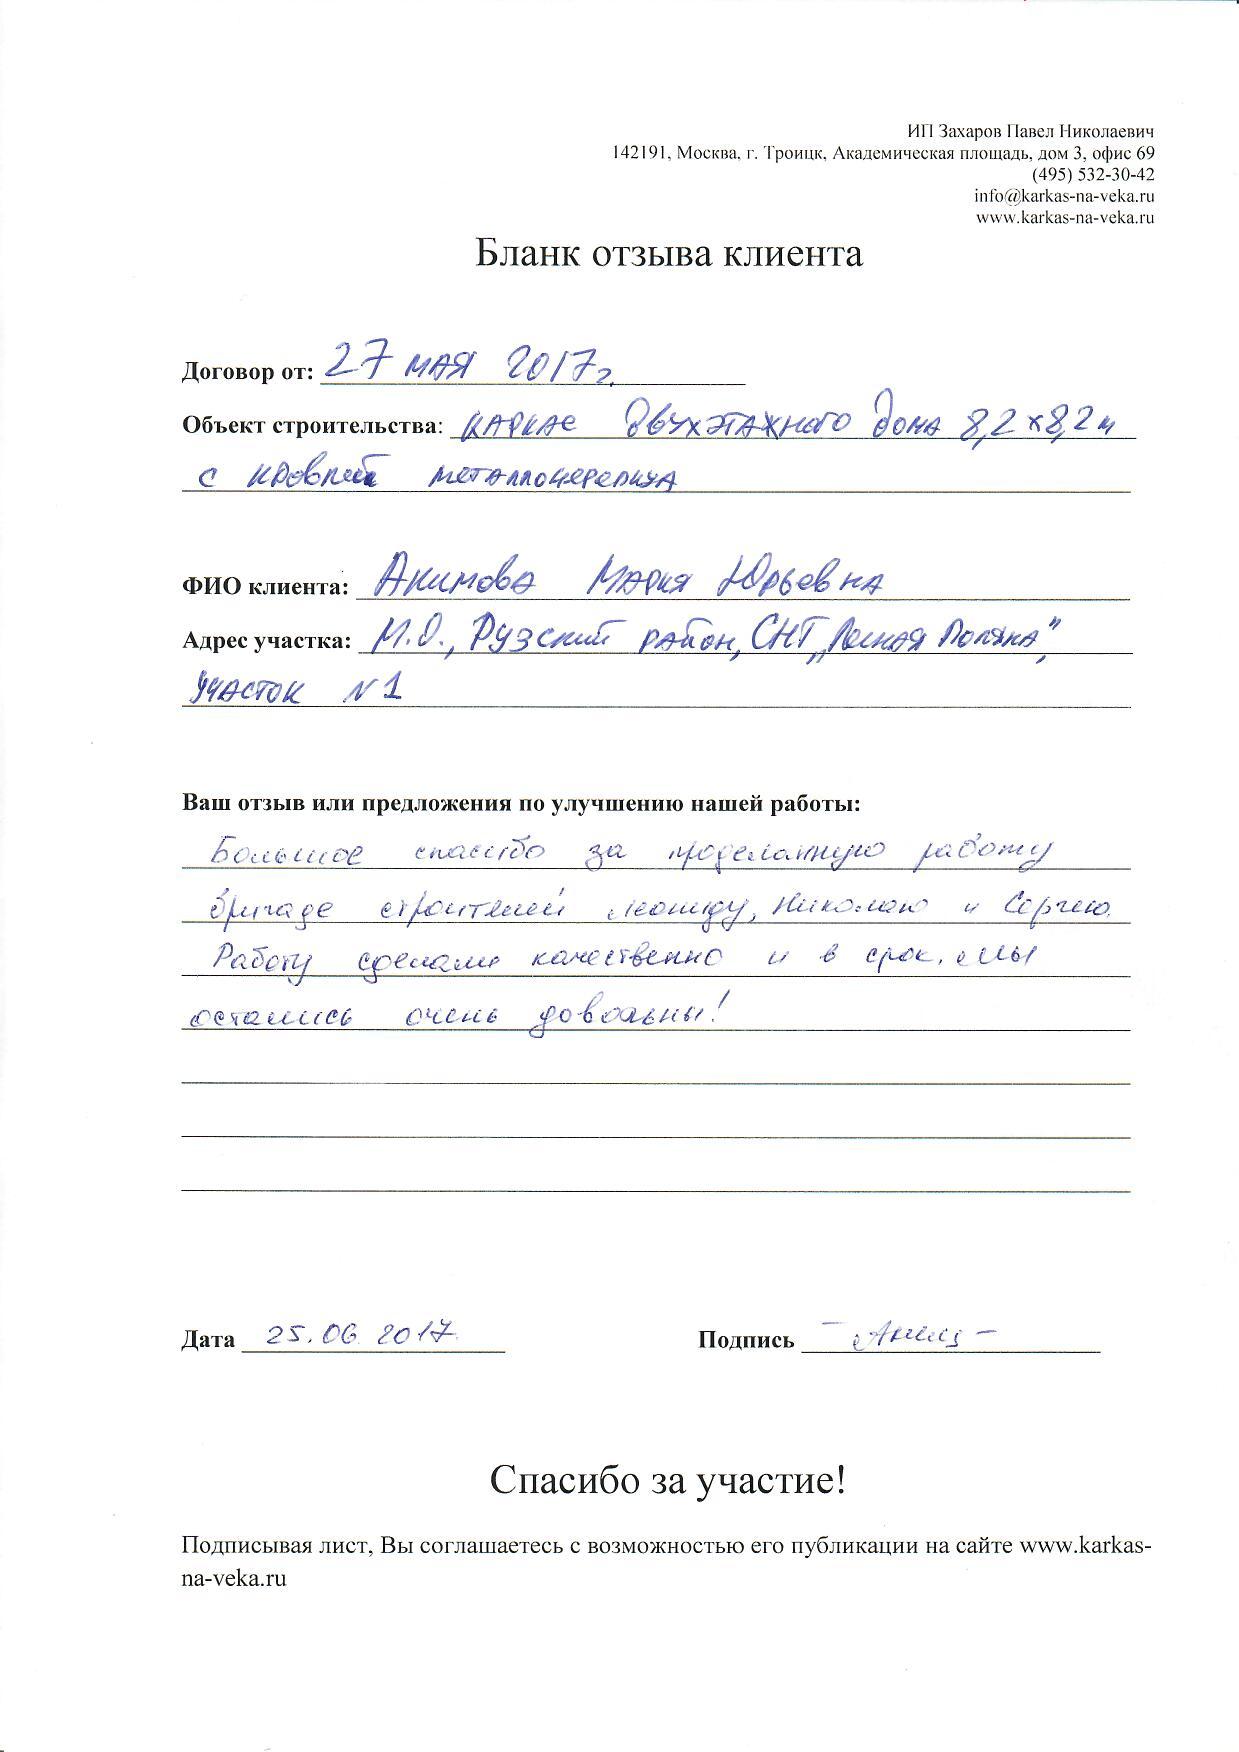 ИП Захаров Павел Николаевич
142191, Москва, г. Троицк, Академическая площадь, дом 3, офис 69
(495) 532-30-42
info@karkas-na-veka.ru
www.karkas-na-veka.ru
Бланк отзыва клиента
Договор от: 27 мая 2017г.
Объект строительства: каркас двухэтажного дома 8,2х8,2м
с кровлей металлочерепица
ФИО клиента: Акимова Мария Юрьевна
Адрес участка: М.О., Рузский район, СНТ „Лесная Поляна",
участок N1
Ваш отзыв или предложения по улучшению нашей работы:
Большое спасибо за проделанную работу
бригаде строителей Леониду, Николаю и Сергею.
Работу сделали качественно и в срок. Мы
остались очень довольны!
Дата 25.06 2017 Подпись
Спасибо за участие!
Подписывая лист, Вы соглашаетесь с возможностью его публикации на сайте www.karkas-
na-veka.ru